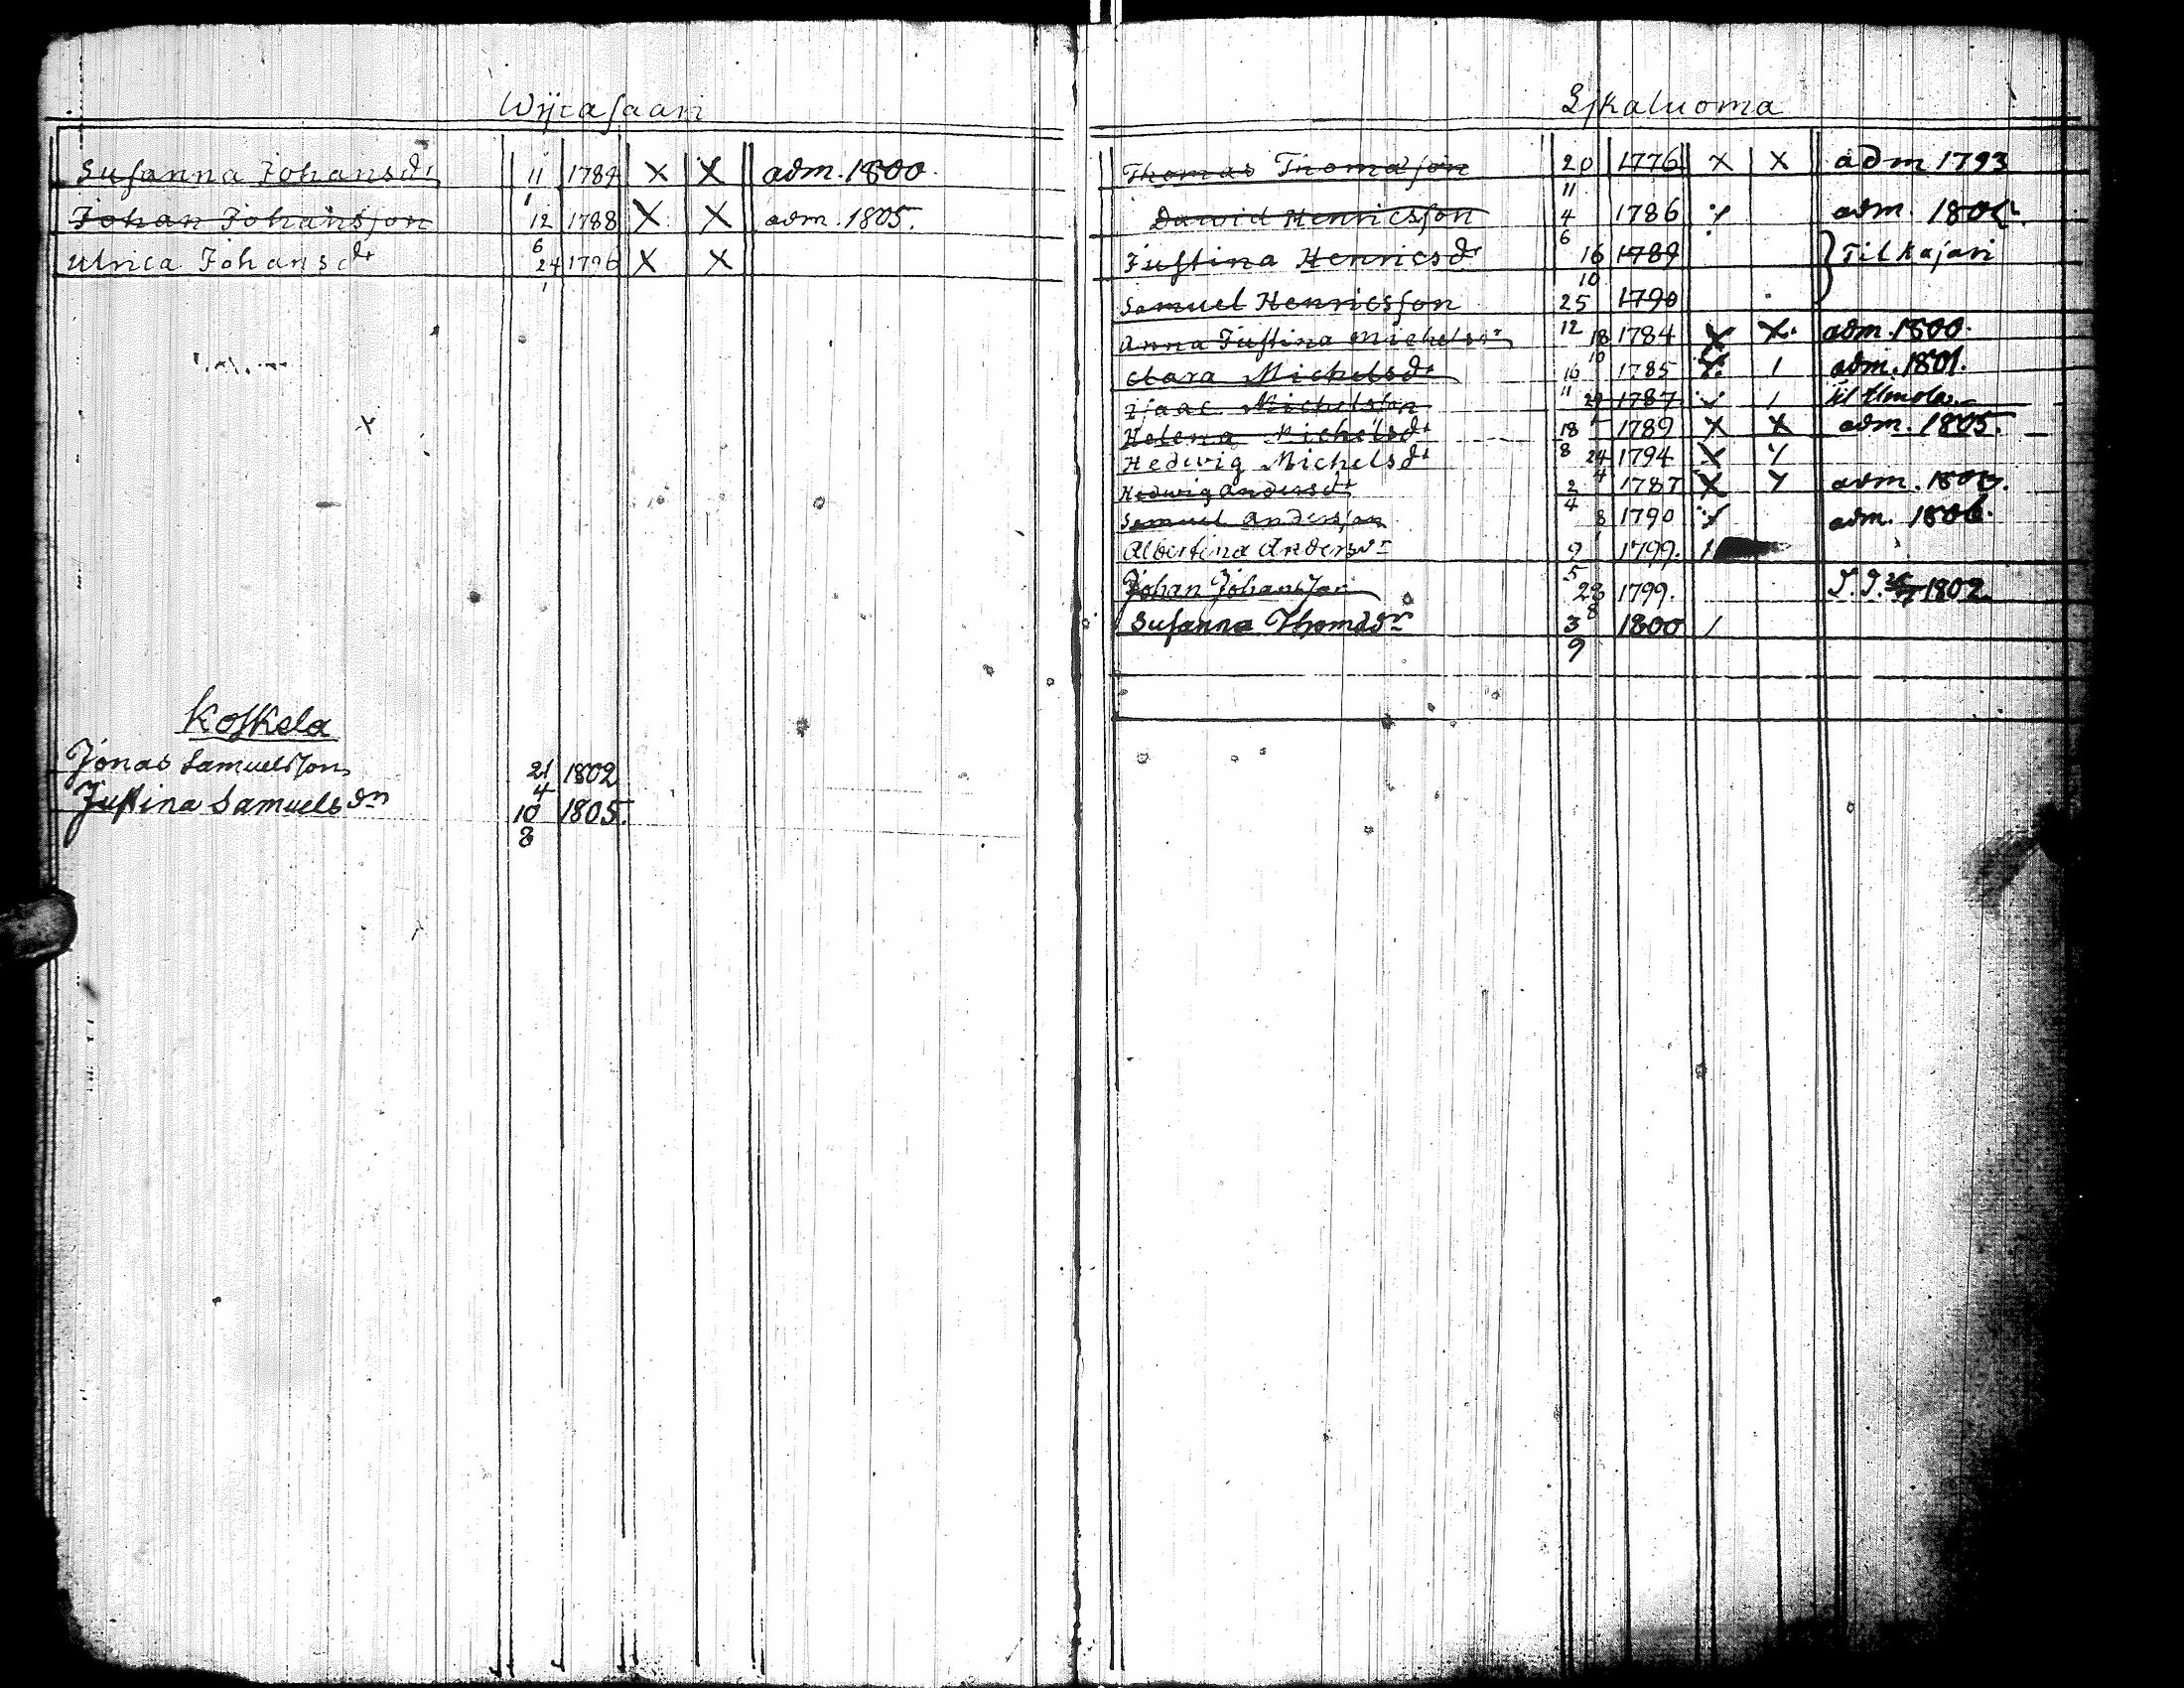 Wijtasaari
Susanna Johansdr 11/1 1784 X X adm. 1800.
Johan Johansson 12/6 1788 X X adm. 1805.
Ulrica Johansdr 24/1 1796 X X
Koskela
Jonas Samuelsson 21/4 1802
Justina Samuelsdr 10/8 1805.
Thomas Thomasson 20/11 1776 X X adm 1793
David Henricsson 4/6 1786 adm.
Justina Henricsdr 16/10 1789 } Til Kajari
Samuel Henricsson 25/12 1790
Anna Justina Michelsdr 18/10 1784 X X adm. 1800.
Clara Michelsdr 16/11 1785 X / adm. 1801.
Isaac Michelsson 1787 / til
Helena Michelsdr 18/8 1789 X X adm. 1805.
Hedwig Michelsdr 24/4 1794 X
Hedwig Andersdr 2/4 1787 X adm.
Samuel Andersson 8 1790 adm. 1806.
Albertina Andersdr 9/5 1799. /
Johan Johansson 28/8 1799. 1802.
Susanna Thomsdr 3/9 1800 /